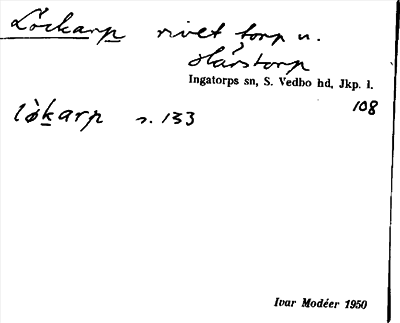 Löckarp rivet torp u.
Hårstorp
Ingatorps sn, S. Vedbo hd, Jkp. l.
108
lø̀karp s. 133
Ivar Modéer 1950